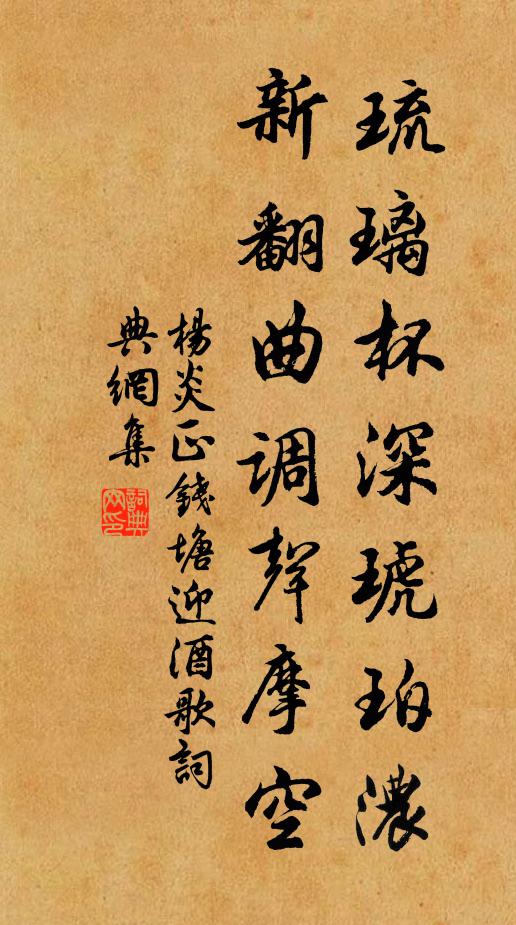 琉璃杯深琥珀濃
新翻曲調聲摩空
楊炎正錢塘迎酒歌詞
典網集
詞典網印